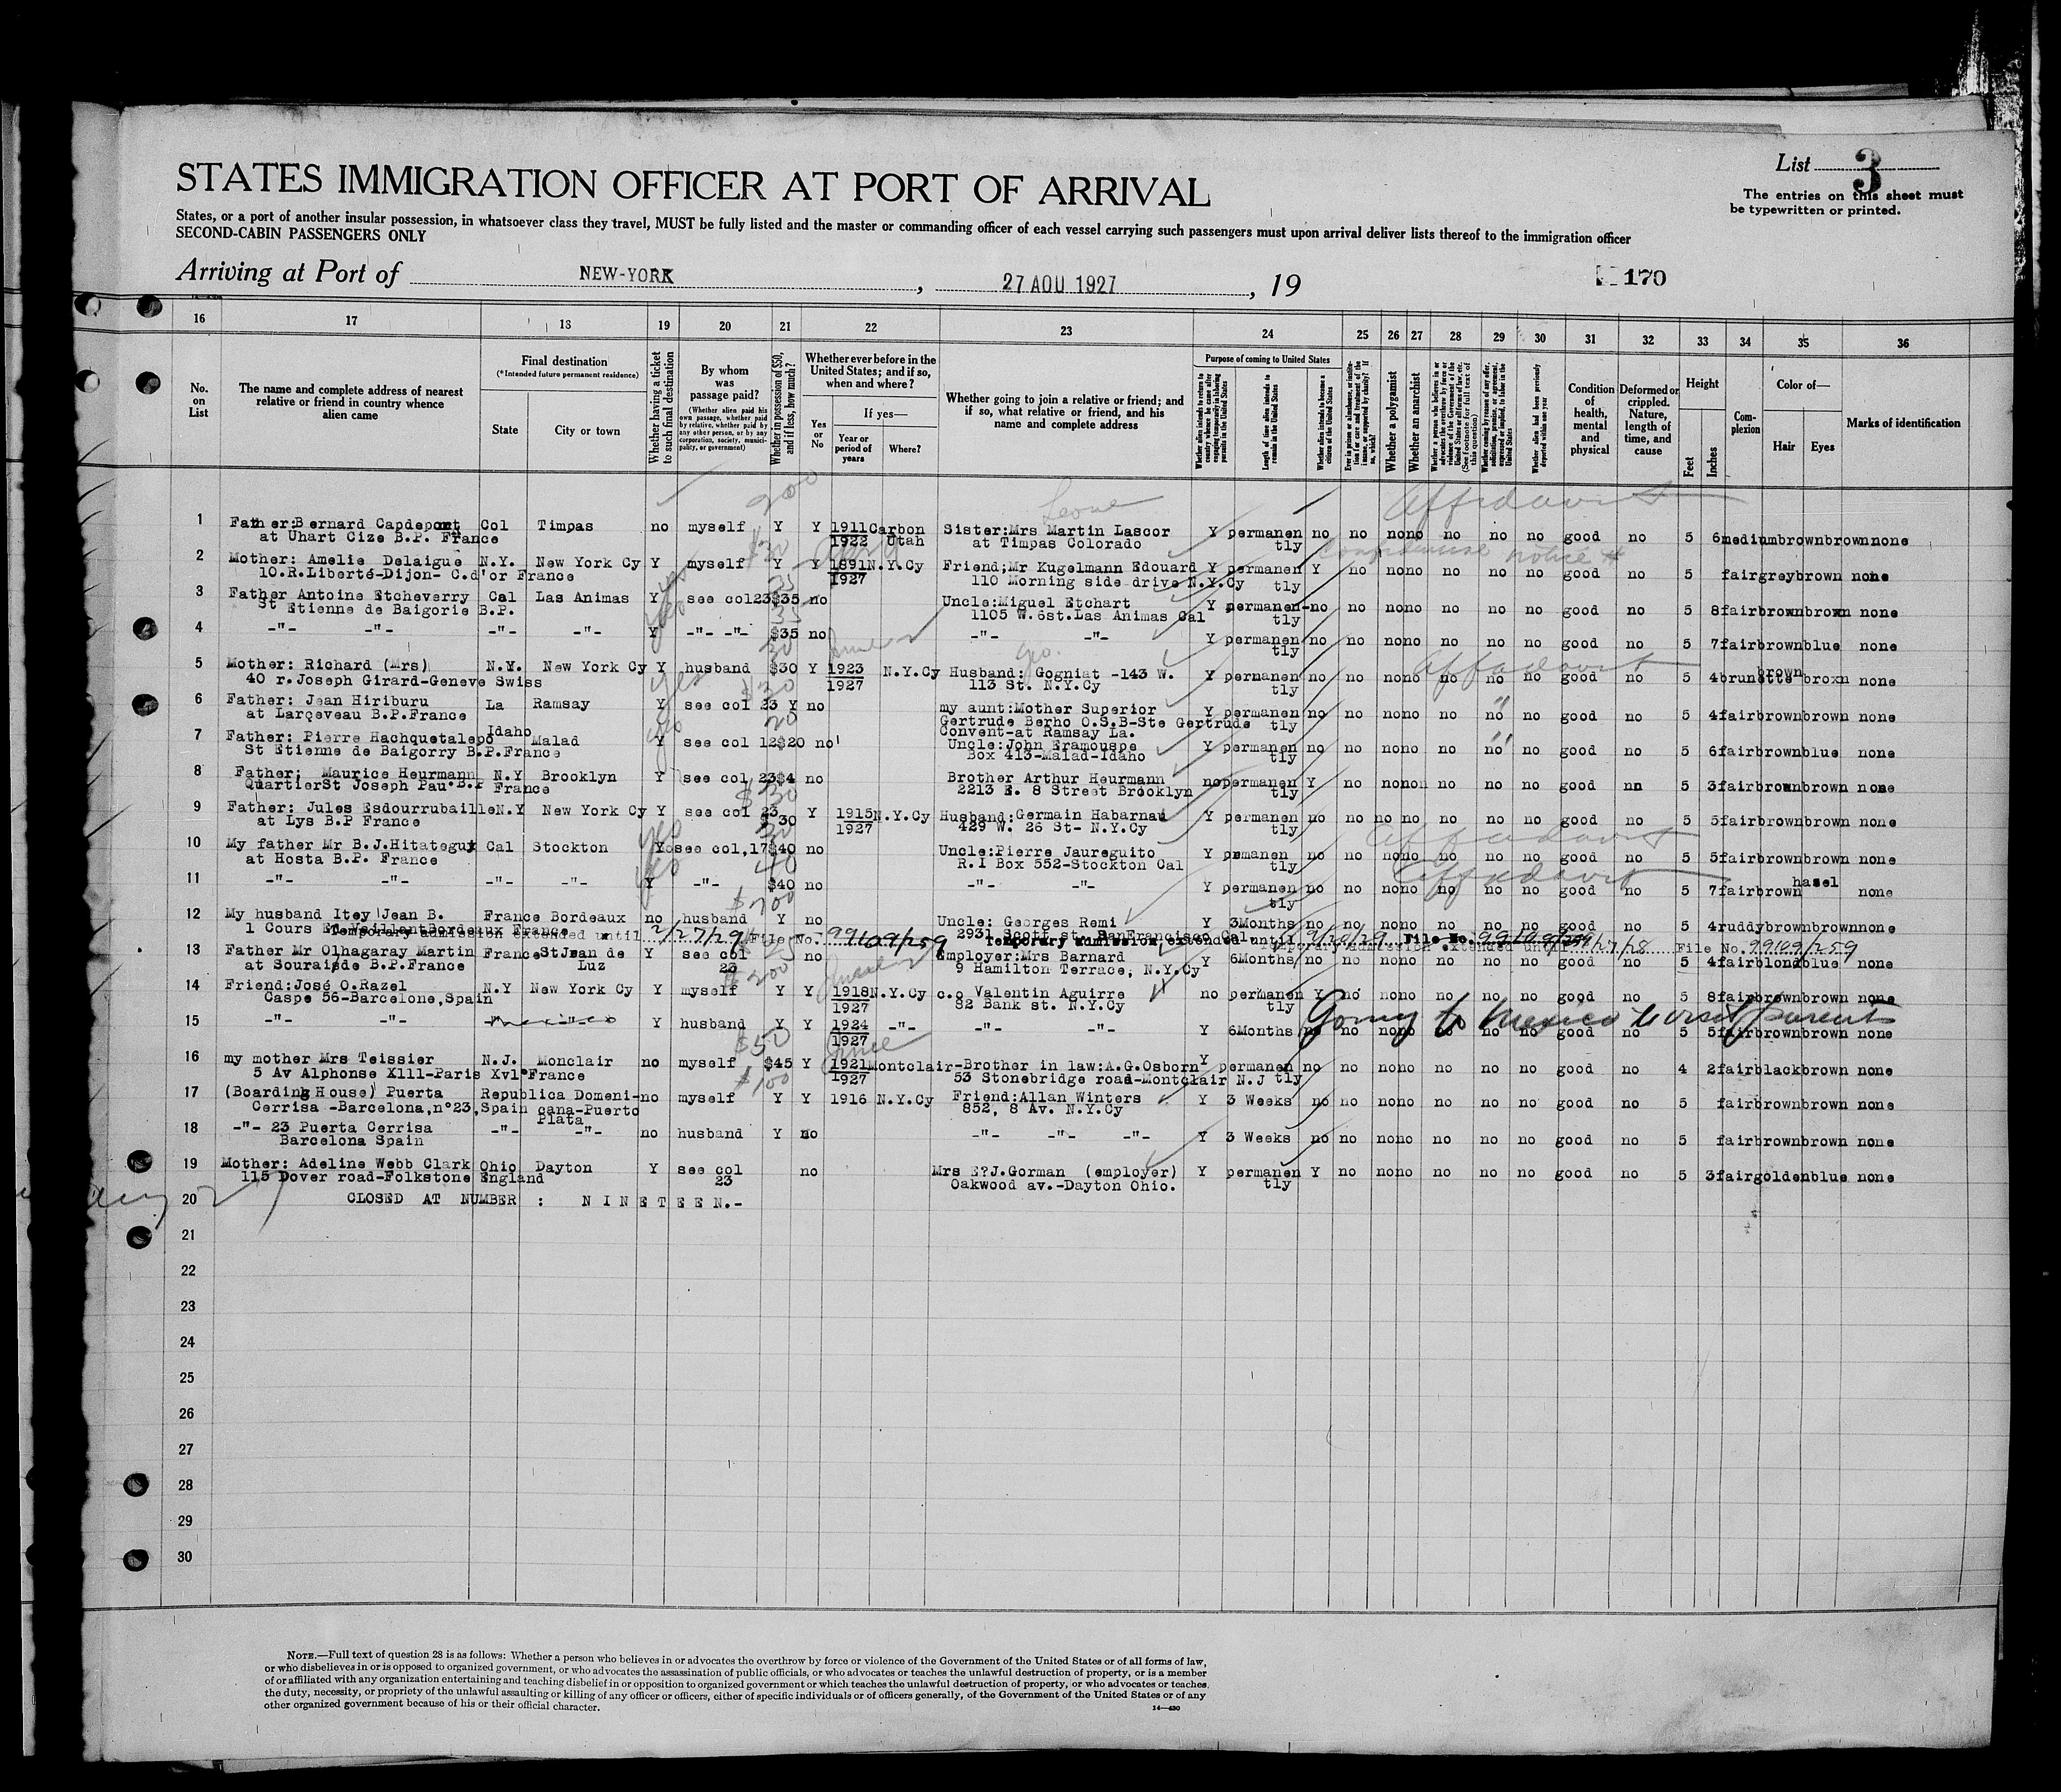 STATES IMMIGRATION OFFICER AT PORT OF ARRIVAL
List 3
The entries on this sheet must
be typewritten or printed.
States, or a port of another insular possession, in whatsoever class they travel, MUST be fully listed and the master or commanding officer of each vessel carrying such passengers must upon arrival deliver lists thereof to the immigration officer
SECOND-CABIN PASSENGERS ONLY
Arriving at Port of NEW-YORK, 27 AOU 1927, 19
170
16 17 18 19 20 21 22 23 24 25 26 27 28 29 30 31 32 33 34 35 36
No. on List
The name and complete address of nearest relative or friend in country whence alien came
Final destination
(*Intended future permanent residence)
State
City or town
Whether having a ticket to such final destination
By whom was passage paid?
(Whether alien paid his own passage, whether paid by relative, whether paid by any other person, or by any corporation, society, municipality, or government)
Whether in possession of $50, and if less, how much?
Whether ever before in the United States; and if so, when and where?
Yes or No
If yes—
Year or period of years
Where?
Whether going to join a relative or friend; and if so, what relative or friend, and his name and complete address
Purpose of coming to United States
Whether alien intends to return to country whence he came after engaging temporarily in laboring pursuits in the United States
Length of time alien intends to remain in the United States
Whether alien intends to become a citizen of the United States
Whether a polygamist
Whether an anarchist
Whether alien had been previously deported within one year
Condition of health, mental and physical
Deformed or crippled. Nature, length of time, and cause
Height
Feet
Inches
Complexion
Color of—
Hair
Eyes
Marks of identification
200 Leone Affidavit
1 Father:Bernard Capdepont Col Timpas no myself Y Y 1911 Carbon Sister:Mrs Martin Lascor Y permanen no no nono no no no good no 5 6 medium brown brown none
at Uhart Cize B.P. France 1922 Utah at Timpas Colorado tly
2 Mother: Amelie Delaigue N.Y. New York Cy Y myself Y Y 1891 N.Y.Cy Friend;Mr Kugelmann Edouard Y permanen Y no nono no no no good no 5 fair grey brown none
10.R.Liberté-Dijon- C.d'or France 1927 110 Morning side drive N.Y.Cy tly
3 Father Antoine Etcheverry Cal Las Animas Y see col23 $35 no Uncle:Miguel Etchart Y permanen- no no nono no no no good no 5 8 fair brown brown none
St Etienne de Baigorie B.P. 1105 W.6st.Las Animas Cal tly
4 -"- -"- -"- -"- Y -"- -"- $35 no -"- -"- Y permanen no no nono no no no good no 5 7 fair brown blue none
tly
5 Mother: Richard (Mrs) N.Y. New York Cy Y husband $30 Y 1923 N.Y.Cy Husband: Gogniat -143 W. Y permanen no no nono no no no good no 5 4 brunette brown none
40 r.Joseph Girard-Geneve Swiss 1927 113 St. N.Y.Cy tly
Affidavit
6 Father: Jean Hiriburu La Ramsay Y see col 23 Y no my aunt:Mother Superior Y permanen no no nono no no no good no 5 4 fair brown brown none
at Larceveau B.P.France Gertrude Berho O.S.B-Ste Gertrude tly
Convent-at Ramsay La.
7 Father: Pierre Hachquetalepo Idaho Malad Y see col 12 $20 no Uncle:John Eramouspe Y permanen no no nono no no no good no 5 6 fair brown blue none
St Etienne de Baigorry B.P.France Box 413-Malad-Idaho tly
8 Father; Maurice Heurmann N.Y Brooklyn Y see col 23 $4 no Brother Arthur Heurmann no permanen Y no nono no no no good no 5 3 fair brown brown none
Quartier St Joseph Pau B.P France 2213 E. 8 Street Brooklyn tly
9 Father: Jules Esdourrubaille N.Y New York Cy Y see col 23 30 Y 1915 N.Y.Cy Husband:Germain Habarnau Y permanen no no no no no no no good no 5 5 fair brown brown none
at Lys B.P France 1927 429 W. 26 St- N.Y.Cy tly
Affidavit
10 My father Mr B.J.Hitateguy Cal Stockton Y see col,17 $40 no Uncle:Pierre Jaureguito Y prmanen no no nono no no no good no 5 5 fair brown brown none
at Hosta B.P. France R.I Box 552-Stockton Cal tly
Affidavit
11 -"- -"- -"- -"- Y -"- $40 no -"- -"- Y permanen no no nono no no no good no 5 7 fair brown hasel none
tly
12 My husband Itey Jean B. France Bordeaux no husband Y no Uncle: Georges Remi Y 3Months no no nono no no no good no 5 4 ruddy brown brown none
1 Cours Ed.Vaillant Bordeaux France 2931 Scott st. SanFrancisco Cal
Temporary admission extended until 2/27/29 File No. 99109/259 Temporary admission extended until File No. 99109/259
Temporary admission extended until File No. 99109/259
13 Father Mr Olhagaray Martin France St Jean de Luz Y see col 23 no Employer:Mrs Barnard Y 6Months no no nono no no no good no 5 4 fair blond blue none
at Souraide B.P.France 9 Hamilton Terrace, N.Y.Cy
14 Friend:José O.Razel N.Y New York Cy Y myself Y Y 1918 N.Y.Cy c.o Valentin Aguirre no permanen Y no nono no no no good no 5 8 fair brown brown none
Caspe 56-Barcelone,Spain 1927 82 Bank st. N.Y.Cy tly
Going to Mexico to visit parents
15 -"- -"- Mexico Y husband Y Y 1924 -"- -"- -"- Y 6Months no no nono no no no good no 5 5 fair brown brown none
1927
16 my mother Mrs Teissier N.J. Monclair no myself $45 Y 1921 Montclair-Brother in law:A.G.Osborn Y permanen no no nono no no no good no 4 2 fair black brown none
5 Av Alphonse Xlll-Paris Xvl France 1927 53 Stonebridge road-Montclair N.J tly
17 (Boarding House) Puerta Republica Domeni- no myself Y Y 1916 N.Y.Cy Friend:Allan Winters Y 3 Weeks no no nono no no no good no 5 fair brown brown none
Cerrisa -Barcelona,n°23,Spain cana-Puerto Plata 852, 8 Av. N.Y.Cy
18 -"- 23 Puerta Cerrisa -"- -"- no husband Y no -"- -"- -"- Y 3 Weeks no no nono no no no good no 5 fair brown brown none
Barcelona Spain
19 Mother: Adeline Webb Clark Ohio Dayton Y see col 23 no Mrs E?J.Gorman (employer) Y permanen Y no nono no no no good no 5 3 fair golden blue none
115 Dover road-Folkstone England Oakwood av.-Dayton Ohio. tly
20 CLOSED AT NUMBER : N I N E T E E N.-
21
22
23
24
25
26
27
28
29
30
NOTE.—Full text of question 28 is as follows: Whether a person who believes in or advocates the overthrow by force or violence of the Government of the United States or of all forms of law,
or who disbelieves in or is opposed to organized government, or who advocates the assassination of public officials, or who advocates or teaches the unlawful destruction of property, or is a member
of or affiliated with any organization entertaining and teaching disbelief in or opposition to organized government or which teaches the unlawful destruction of property, or who advocates or teaches
the duty, necessity, or propriety of the unlawful assaulting or killing of any officer or officers, either of specific individuals or of officers generally, of the Government of the United States or of any
other organized government because of his or their official character.
14—430